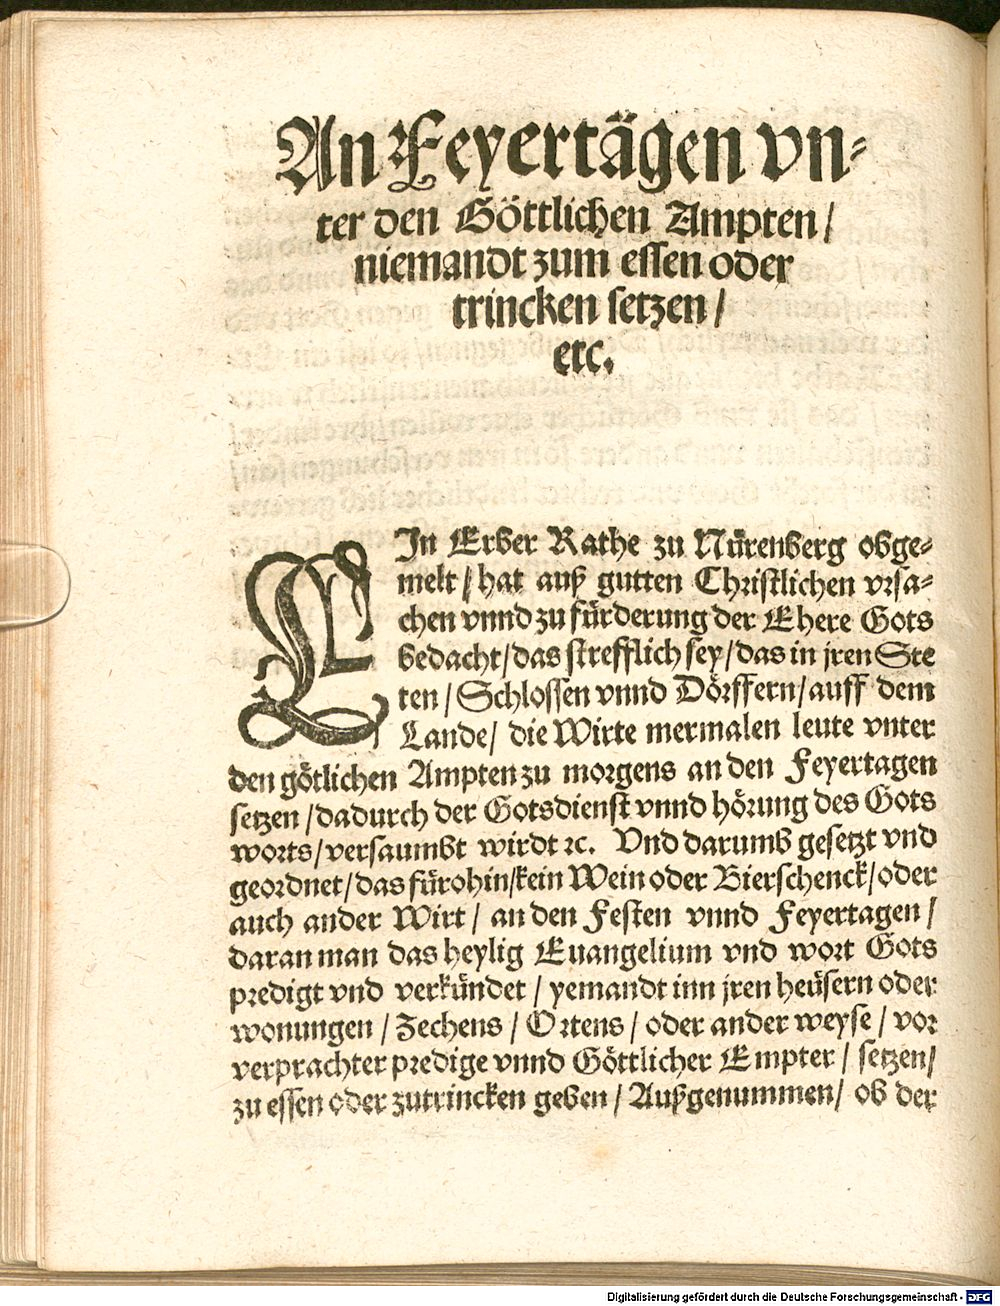 An Feyertägen vn-
ter den Göttlichen Ampten/
niemandt zum essen oder
trincken setzen/
etc.
EIn Erber Rathe zu Nürenberg obge-
melt/ hat auß gutten Christlichen vrsa-
chen vnnd zu fürderung der Ehere Gots
bedacht/ das strefflich sey/ das in jren Ste
ten/ Schlossen vnnd Dörffern/ auff dem
Lande/ die Wirte mermalen leute vnter
den götlichen Ampten zu morgens an den Feyertagen
setzen/ dadurch der Gotsdienst vnnd hörung des Gots
worts/ versaumbt wirdt ⁊c. Vnd darumb gesetzt vnd
geordnet/ das fürohin/ kein Wein oder Bierschenck/ oder
auch ander Wirt/ an den Festen vnnd Feyertagen/
daran man das heylig Euangelium vnd wort Gots
predigt vnd verkündet/ yemandt inn jren heüsern oder
wonungen/ Zechens/ Ortens/ oder ander weyse/ vor
verprachter predige vnnd Göttlicher Empter/ setzen/
zu essen oder zutrincken geben/ Außgenummen/ ob der
Digitalisierung gefördert durch die Deutsche Forschungsgemeinschaft - DFG